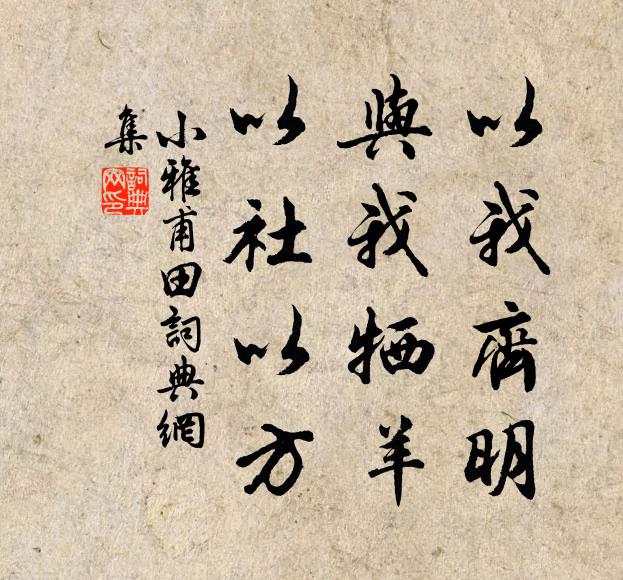 以我齊明
與我牺羊
以社以方
小雅甫田詞典網
集
詞典
网印